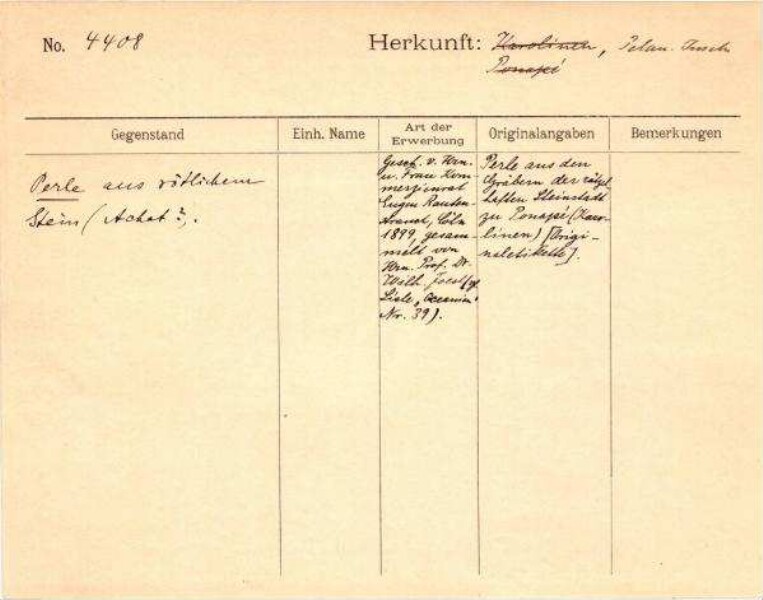 No. 4408
Herkunft: Karolinen, Pelau-Inseln
Ponapé
Gegenstand
Einh. Name
Art der Erwerbung
Originalangaben
Bemerkungen
Perle aus rötlichem
Stein (Achat?).
Gesch. v. Hrn.
u. Frau Kom-
merzienrat
Eugen Rauten-
strauch, Cöln
1899, gesam-
melt von
Hrn. Prof. Dr.
Wilh. Joest (cf.
Liste „Oceanien"
Nr. 39).
Perle aus den
Gräbern der rätsel-
haften Steinstadt
zu Ponapé (Karo-
linen) [Origi-
naletikette].